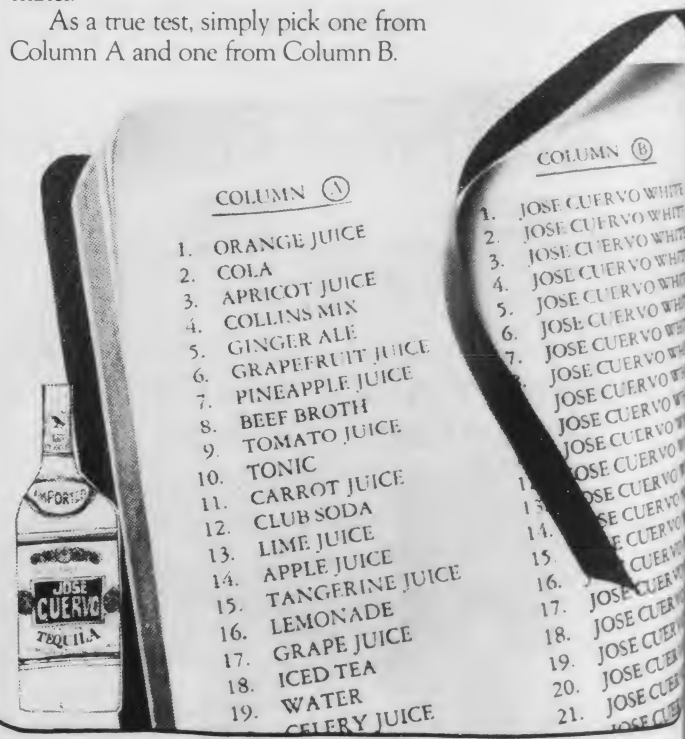 As a true test, simply pick one from
Column A and one from Column B.
COLUMN A
1. ORANGE JUICE
2. COLA
3. APRICOT JUICE
4. COLLINS MIX
5. GINGER ALE
6. GRAPEFRUIT JUICE
7. PINEAPPLE JUICE
8. BEEF BROTH
9. TOMATO JUICE
10. TONIC
11. CARROT JUICE
12. CLUB SODA
13. LIME JUICE
14. APPLE JUICE
15. TANGERINE JUICE
16. LEMONADE
17. GRAPE JUICE
18. ICED TEA
19. WATER
CELERY JUICE
COLUMN B
1. JOSE CUERVO WHITE
2. JOSE CUERVO WHIT
3. JOSE CUERVO WHIT
4. JOSE CUERVO WHI
5. JOSE CUERVO WHI
6. JOSE CUERVO WHI
7. JOSE CUERVO WH
JOSE CUERVO WH
JOSE CUERVO W
JOSE CUERVO W
JOSE CUERVO
OSE CUERVO
13. OSE CUERVO
14. SE CUERVO
15. CUERVO
16. CUERV
17. JOSE CUER
18. JOSE CUER
19. JOSE CUER
20. JOSE CUE
21. JOSE CUE
JOSE CUE
IMPORTED
JOSE
CUERVO
TEQUILA